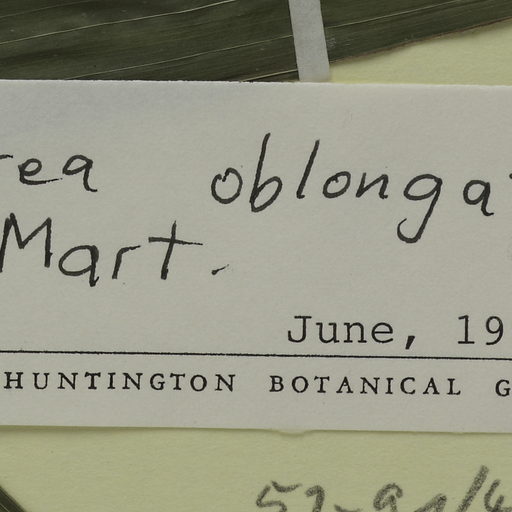 rea oblonga
Mart.
June, 19
HUNTINGTON BOTANICAL G